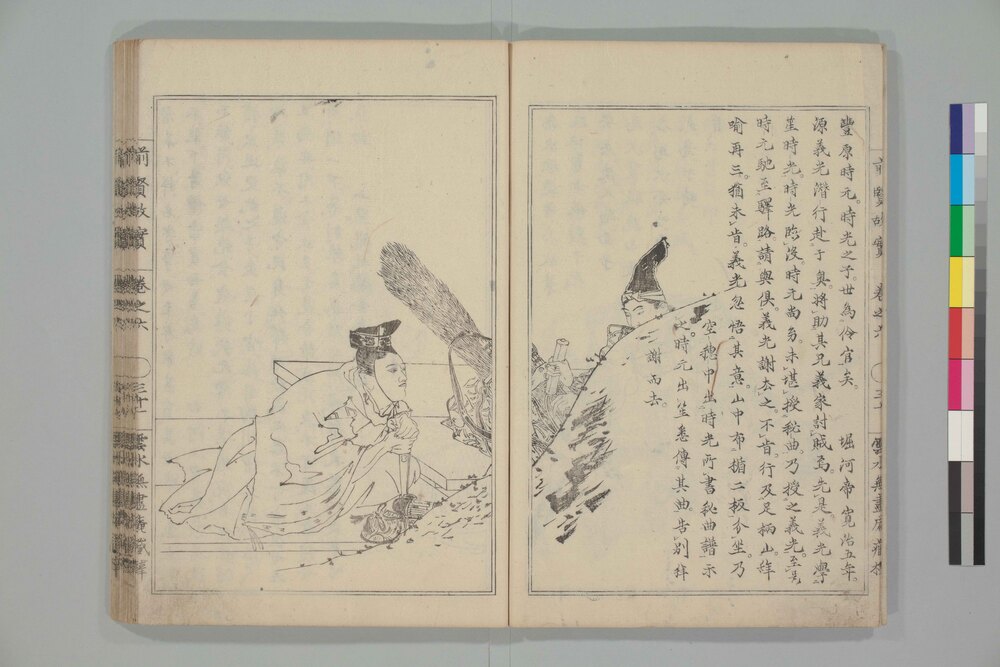 豐原時元。時光之子。世為伶官矣。　堀河帝寛治五年。
源義光潛行赴于奥。將助其兄義家討賊焉。先是。義光學
笙時光。時光臨沒。時元尚幼。未堪授秘曲。乃授之義光。至是
時元馳至驛路請與俱。義光謝太之。不肯。行及足柄山。辞
喻再三。猶未肯。義光忽悟其意。山中布楯二板分坐。乃
空穗中出時光所書秘曲譜示
之。時元出笙。悉傳其曲。告別拜
謝而去。
前賢故實　卷之六　三十一